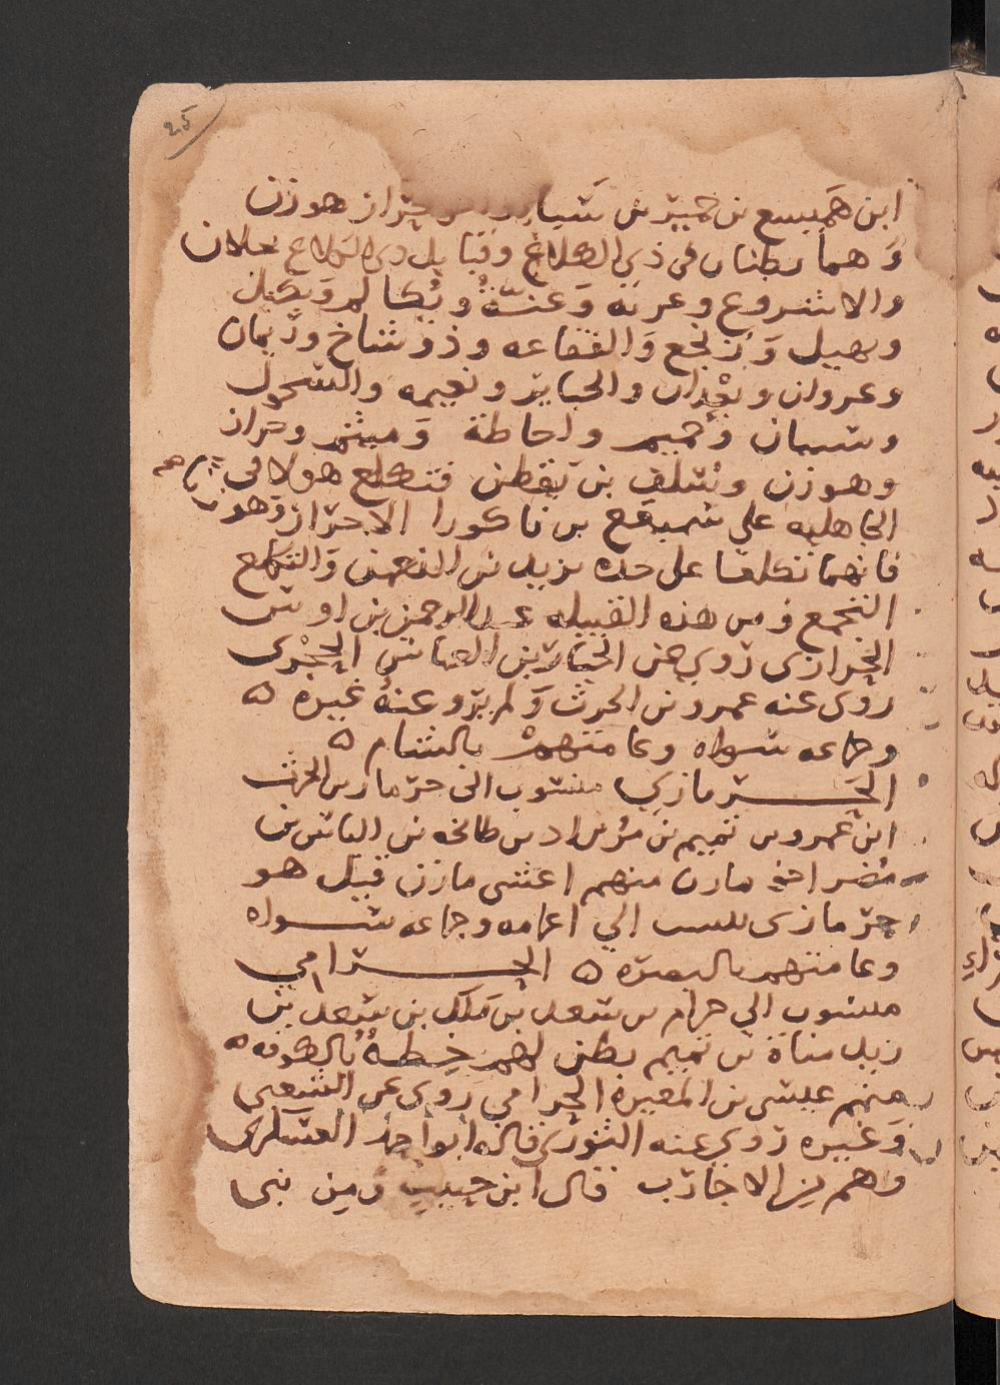 25
ابن هَميسع بن حمير بن سَبا حراز هوزن
وَهما بطنان في ذي الكلاع وقبايل ذي الكلاع
والاشروع وَعنّةُ ويُكالم وَبَكيل
وهبيل وَ وَالقفاعه وذو شناخ
وعروان وبَعْدان والحباير ونعيمه والسَّحول
وشيبان وَحميم واحاطة وَميثم وحراز
وهوزن وسَلَف بن يَقطن فتكلع هولا في
الجاهليه على سَميفع بن ناكورا الا حَراز وَهوزن
فانهما تكلعا على حده يزيد بن النعمن وَالتكلع
التجمع ومن هذه القبيله عبد الرحمن بن اوس
الحرازي رَوى عن الحباب بن الحِجْري
روى عنه عمرو بن الحرث وَلم يَرو عنهُ غيره ه
وجماعه سواه وعامتهمْ بالشام ه
الحِـرمازي منسوب الى حرماز بن الحرث
ابن عمرو بن تميم بن مُر بن اد بن طابخه بن الياس بن
مُضر اخو مازن منهم اعشى مازن قيل هو
حِرمازى نسب الي اعمامه وجماعه سـواه
وعامتهم بالبصره ه الحـرامي
منسوب الي حرام بن سَعد بن مَلك بن سَعد بن
زيد مناة بن تميم بطن لهم خِطةُ بالكوفه ه
منهم عيسى بن المغيرة الحرامي رَوى عن الشعبي
وَغيره رَوى عنه الثوري قاله ابو احمد العسكرى
وهم من الاحارب قال ابن حبيب وَمِن بني